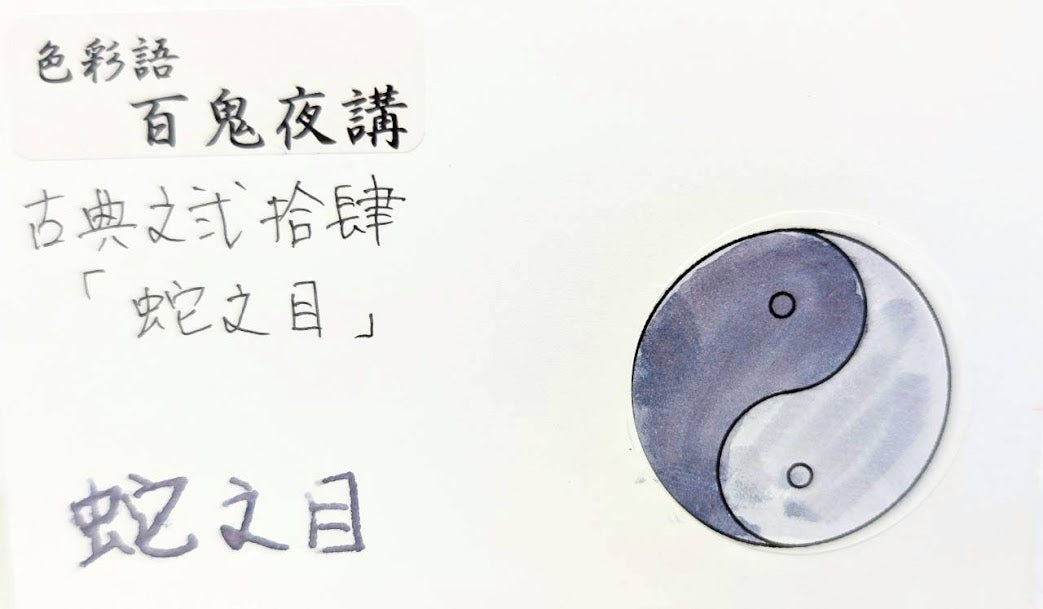 色彩語
百鬼夜講
古典文弍拾肆
「蛇之目」
蛇之目